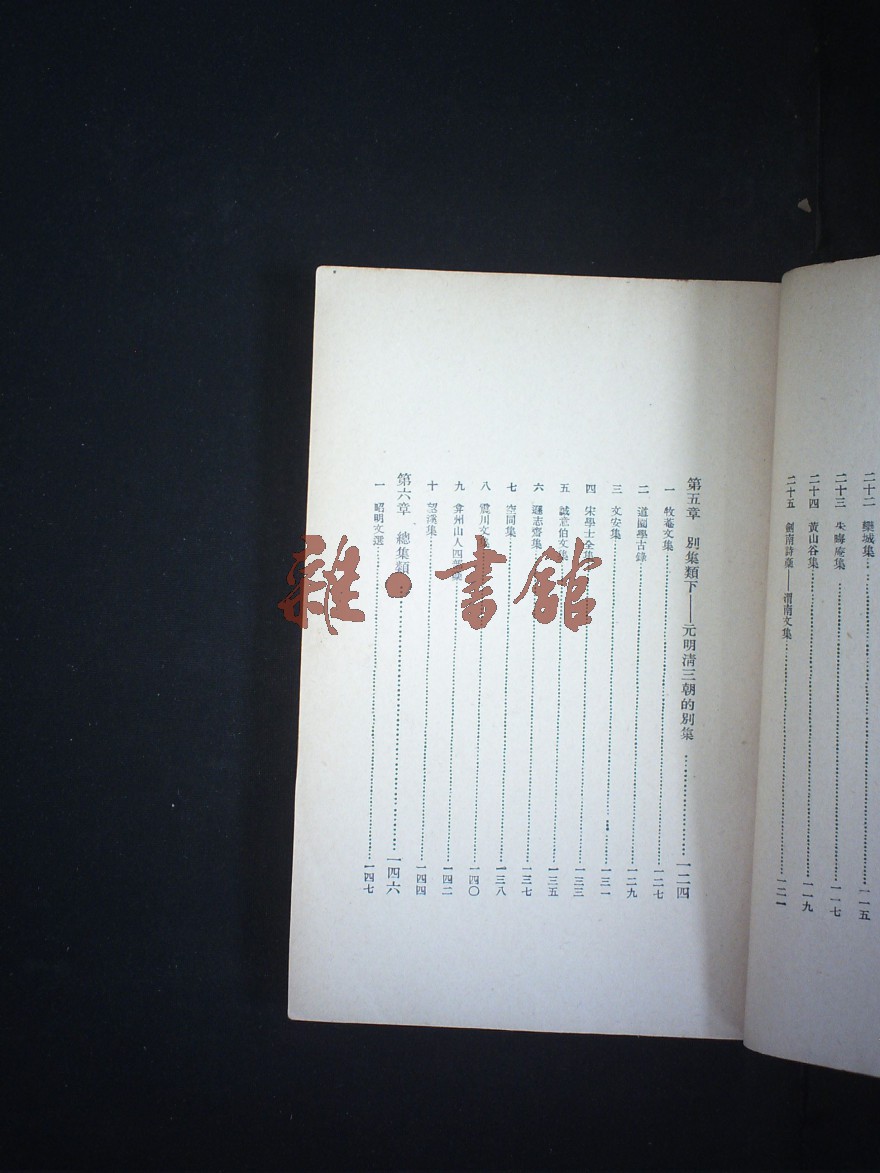 二十二 欒城集……一一五
二十三 朱晦庵集……一一七
二十四 黃山谷集……一一九
二十五 劍南詩藁——渭南文集……一二一
第五章 別集類下——元明清三朝的別集……一二四
一 牧菴文集……一二七
二 道園學古錄……一二九
三 文安集……一三一
四 宋學士全集……一三三
五 誠意伯文集……一三五
六 遜志齋集……一三七
七 空同集……一三八
八 震川文集……一四〇
九 弇州山人四部藁……一四二
十 望溪集……一四四
第六章 總集類……一四六
一 昭明文選……一四七
雜·書館